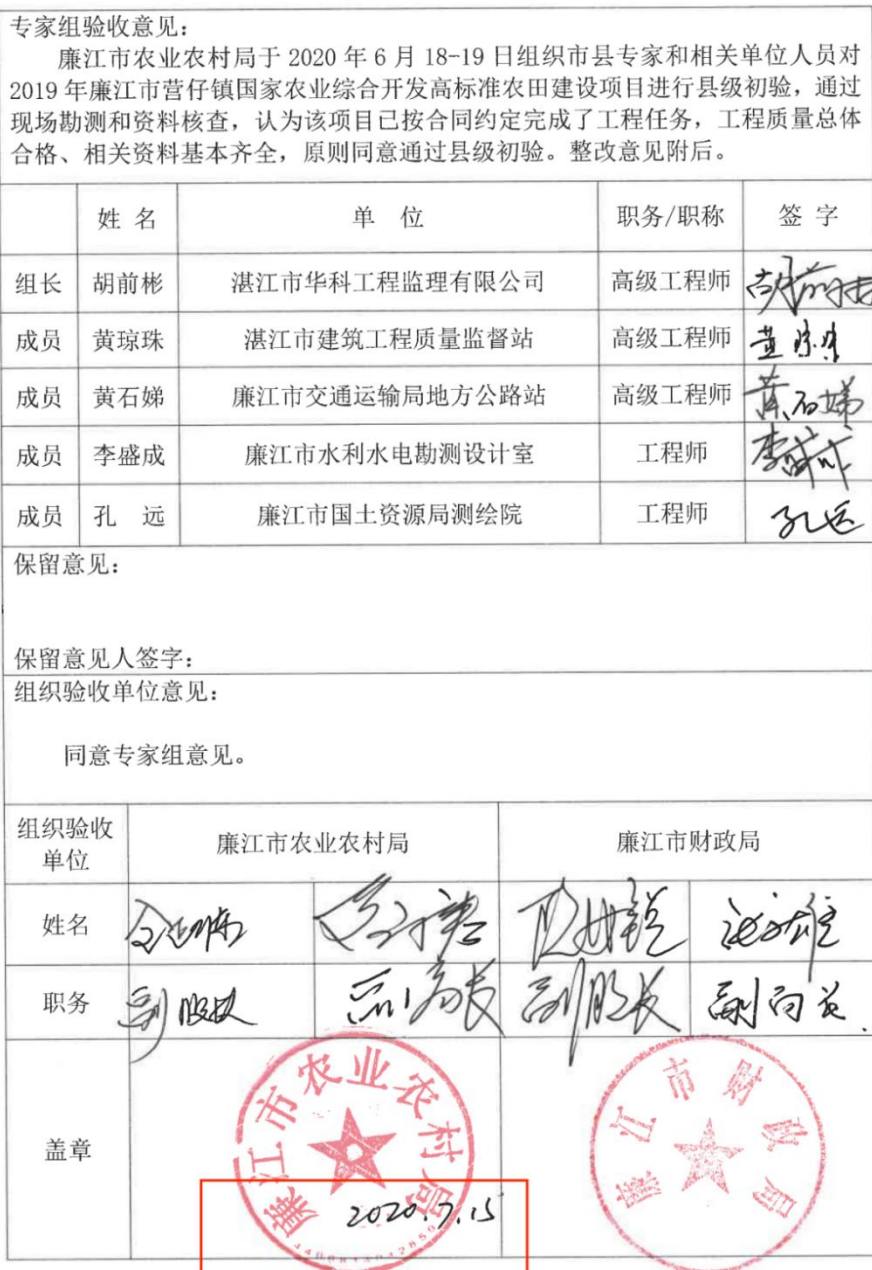 专家组验收意见：
廉江市农业农村局于 2020 年 6 月 18-19 日组织市县专家和相关单位人员对
2019 年廉江市营仔镇国家农业综合开发高标准农田建设项目进行县级初验，通过
现场勘测和资料核查，认为该项目已按合同约定完成了工程任务，工程质量总体
合格、相关资料基本齐全，原则同意通过县级初验。整改意见附后。
姓 名 单 位 职务/职称 签 字
组长 胡前彬 湛江市华科工程监理有限公司 高级工程师 胡前彬
成员 黄琼珠 湛江市建筑工程质量监督站 高级工程师 黄琼珠
成员 黄石娣 廉江市交通运输局地方公路站 高级工程师 黄石娣
成员 李盛成 廉江市水利水电勘测设计室 工程师 李盛成
成员 孔 远 廉江市国土资源局测绘院 工程师 孔远
保留意见：
保留意见人签字：
组织验收单位意见：
同意专家组意见。
组织验收
单位
廉江市农业农村局 廉江市财政局
姓名
职务 副股长 副局长 副股长 副局长
盖章
廉江市农业农村局
2020.7.15
廉江市财政局